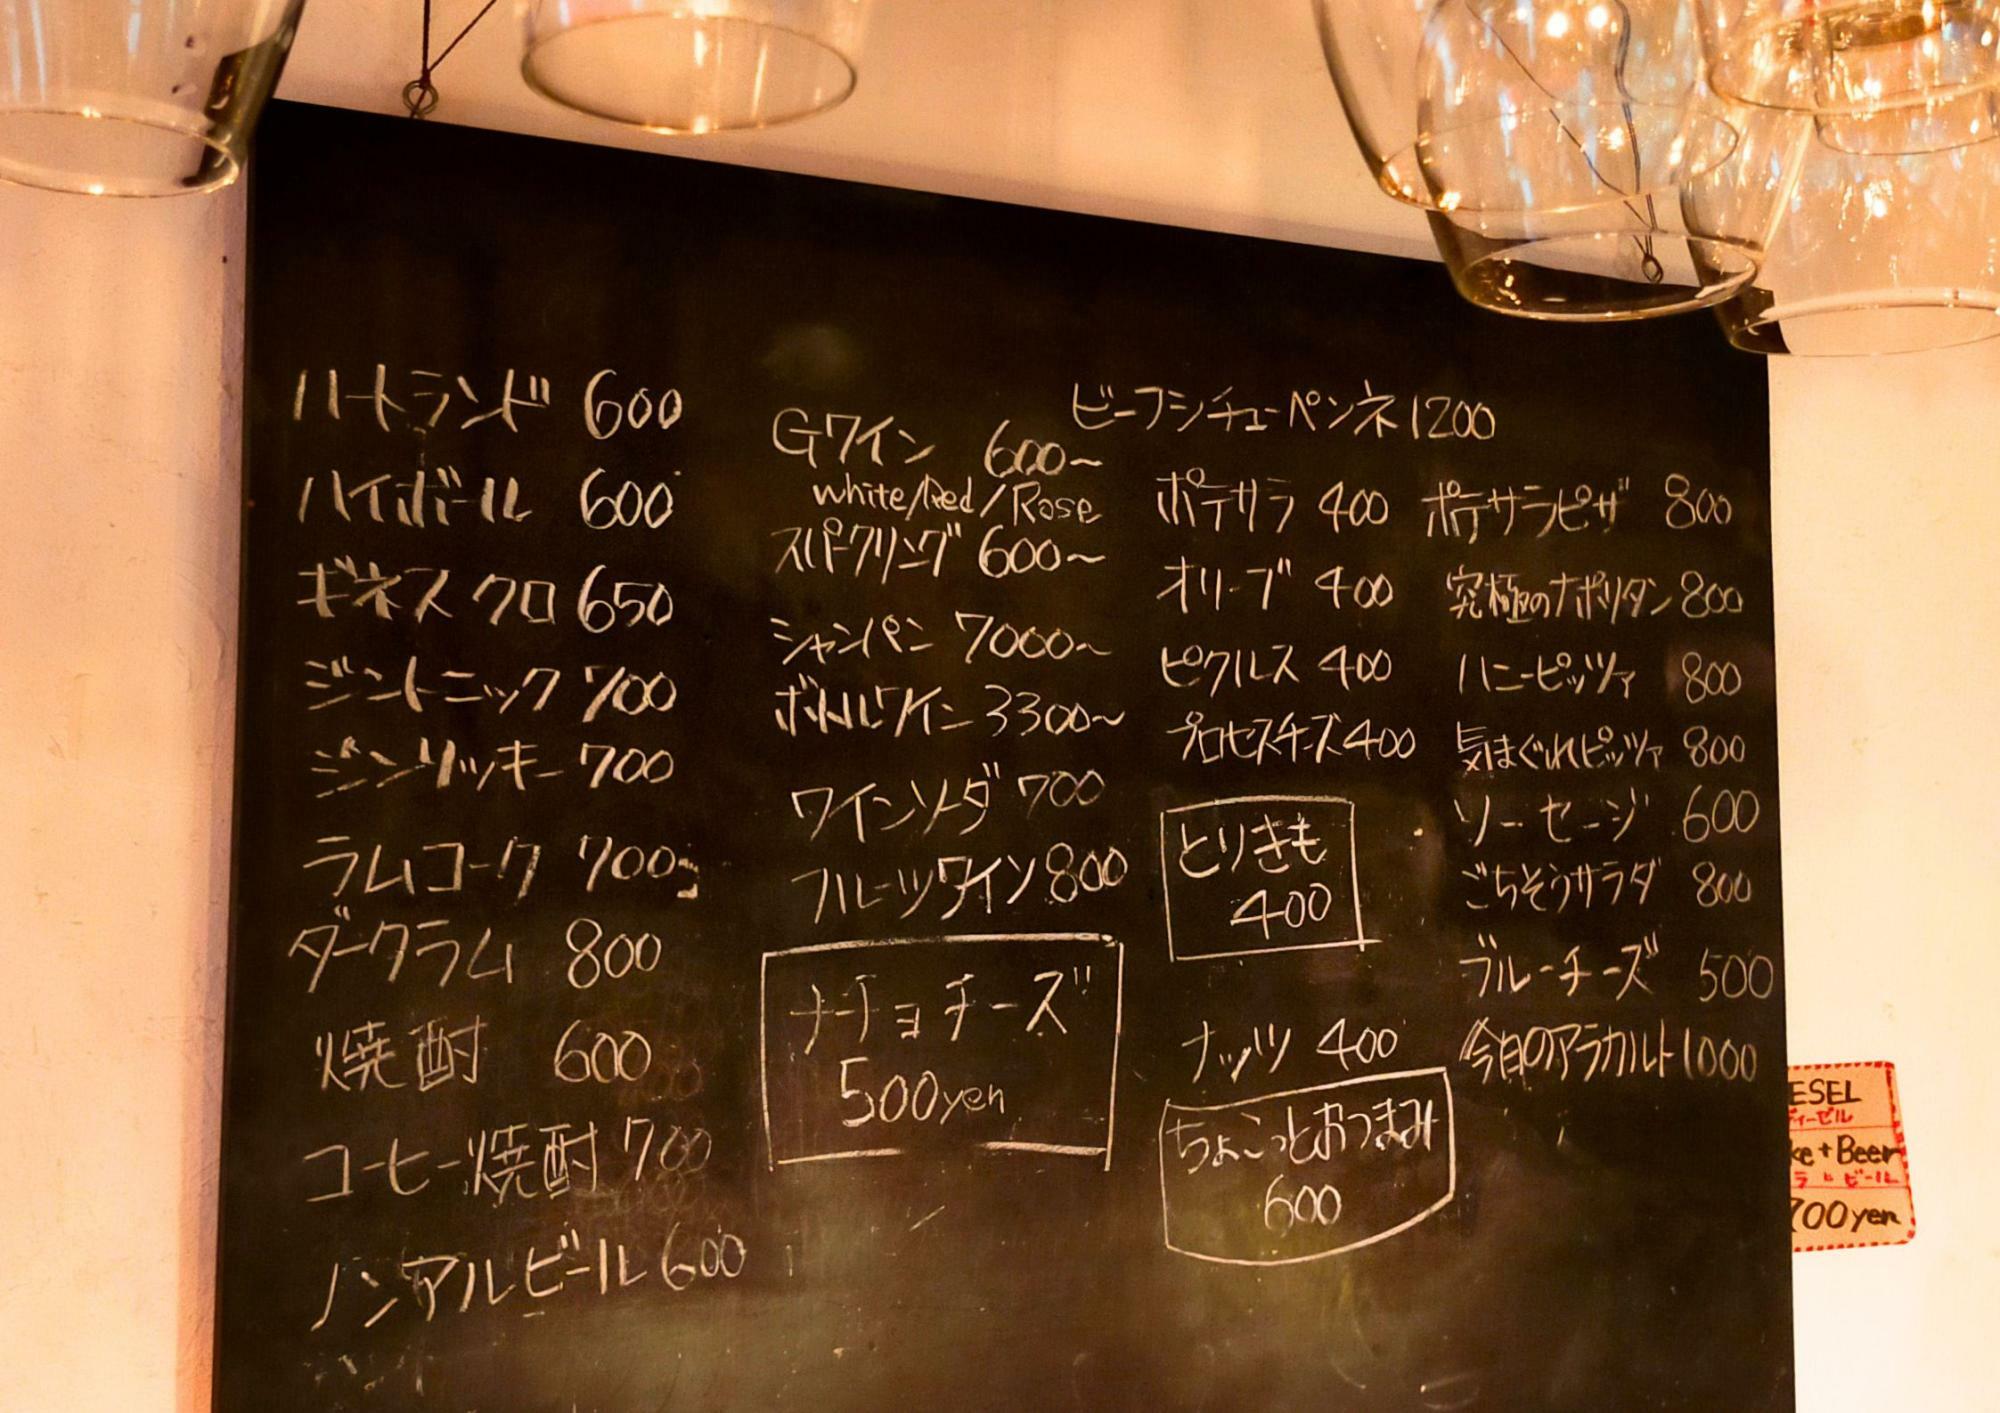 ハートランド 600
ハイボール 600
ギネス クロ 650
ジントニック 700
ジンリッキー 700
ラムコーク 700
ダークラム 800
焼酎 600
コーヒー焼酎 700
ノンアルビール 600
Gワイン 600〜
white/Red/Rose
スパークリング 600〜
シャンパン 7000〜
ボトルワイン 3300〜
ワインソーダ 700
フルーツワイン 800
ナーチョチーズ
500yen
ビーフシチューペンネ 1200
ポテサラ 400
オリーブ 400
ピクルス 400
プロセスチーズ 400
とりきも
400
ナッツ 400
ちょこっとおつまみ
600
ポテサラピザ 800
究極のナポリタン 800
ハニーピッツァ 800
気まぐれピッツァ 800
ソーセージ 600
ごちそうサラダ 800
ブルーチーズ 500
今日のアラカルト 1000
ESEL
ディーゼル
ke+Beer
ラ+ビール
700yen